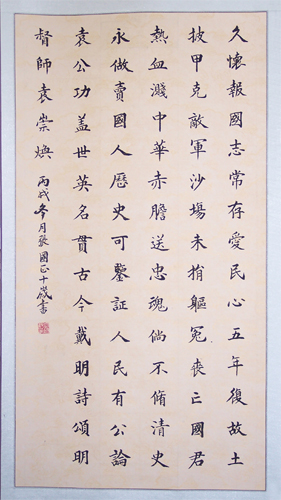 久懷報國志常存愛民心五年復故土
披甲克敵軍沙場未捐軀冤喪亡國君
熱血濺中華赤膽送忠魂倘不脩清史
永做賣國人歷史可鑒証人民有公論
袁公功盖世英名貫古今戴明詩頌明
督師袁崇煥 丙戌冬月張國正十歲書